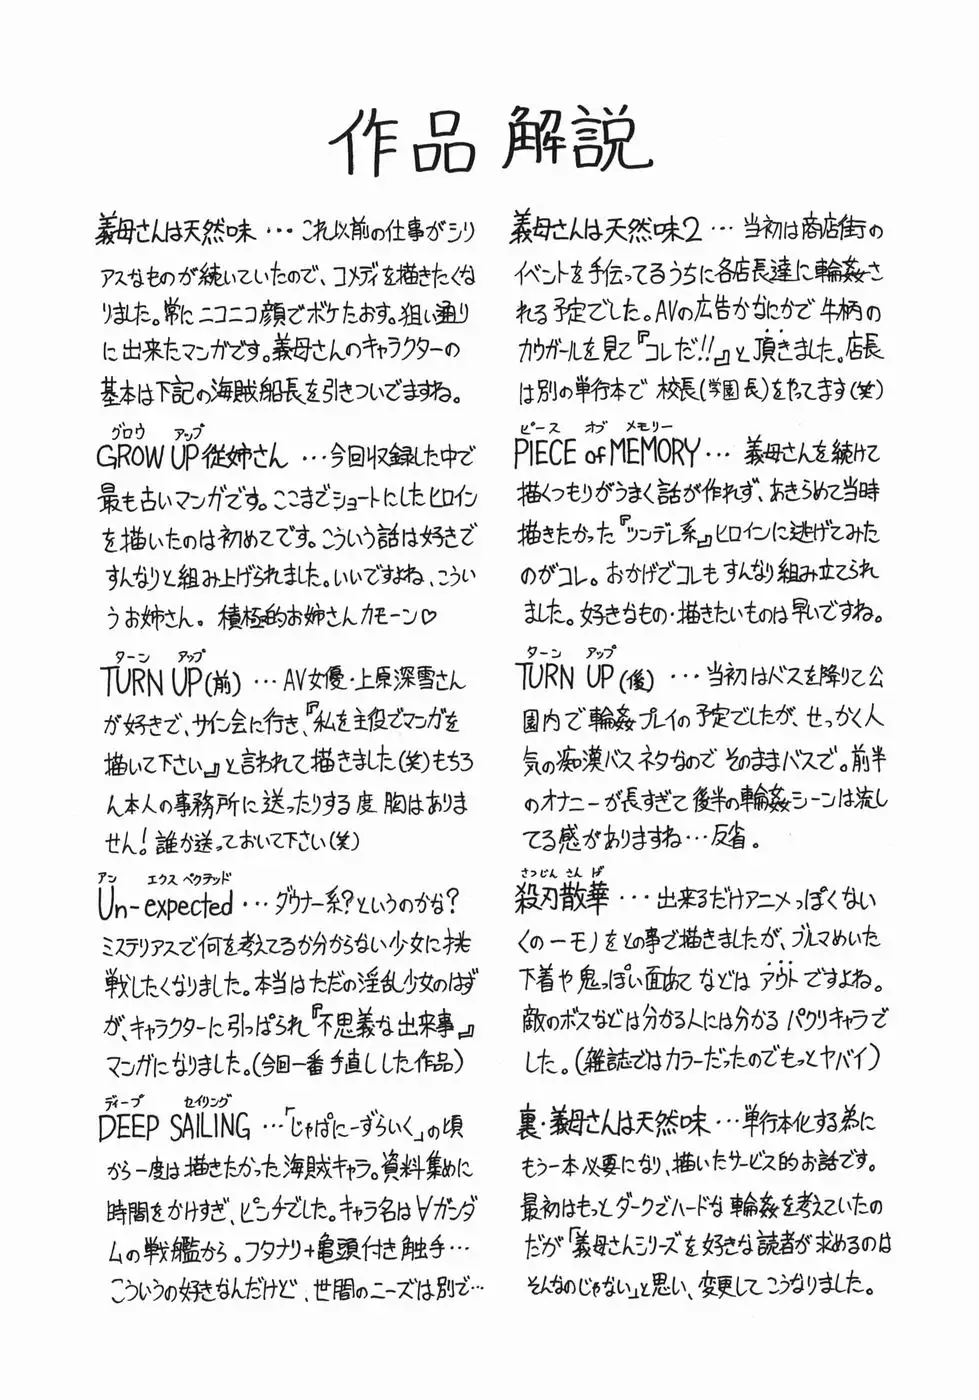 作品解説
義母さんは天然味・・・これ以前の仕事がシリ
アスなものが続いていたので、コメディを描きたくな
りました。常にニコニコ顔でボケたおす。狙い通り
に出来たマンガです。義母さんのキャラクターの
基本は下記の海賊船長を引きついでますね。
グロウ アップ
GROW UP従姉さん ・・・今回収録した中で
最も古いマンガです。ここまでショートにしたヒロイン
を描いたのは初めてです。こういう話は好きで
すんなりと組み上げられました。いいですよね、こうい
うお姉さん。積極的お姉さんカモーン♡
ターン アップ
TURN UP(前) ・・・AV女優・上原深雪さん
が好きで、サイン会に行き、『私を主役でマンガを
描いて下さい』と言われて描きました(笑)もちろ
ん本人の事務所に送ったりする度胸はありま
せん!誰か送っておいて下さい(笑)
アン エクスペクテッド
Un-expected・・・ダウナー系?というのかな?
ミステリアスで何を考えてるか分からない少女に挑
戦したくなりました。本当はただの淫乱少女のはず
が、キャラクターに引っぱられ『不思議な出来事』
マンガになりました。(今回一番手直しした作品)
ディープ セイリング
DEEP SAILING・・・「じゃぱにーずらいく」の頃
から一度は描きたかった海賊キャラ。資料集めに
時間をかけすぎ、ピンチでした。キャラ名は∀ガンダ
ムの戦艦から。フタナリ+亀頭付き触手・・・
こういうの好きなんだけど、世間のニーズは別で・・・
義母さんは天然味2・・・当初は商店街の
イベントを手伝ってるうちに各店長達に輪姦さ
れる予定でした。AVの広告かなにかで牛柄の
カウガールを見て『コレだ!!』と頂きました。店長
は別の単行本で校長(学園長)をやてます(笑)
ピース オブ メモリー
PIECE of MEMORY・・・義母さんを続けて
描くつもりがうまく話が作れず、あきらめて当時
描きたかった『ツンデレ系』ヒロインに逃げてみた
のがコレ。おかげでコレもすんなり組み立てられ
ました。好きなもの・描きたいものは早いですね。
ターン アップ
TURN UP(後) ・・・当初はバスを降りて公
園内で輪姦プレイの予定でしたが、せっかく人
気の痴漢バスネタなのでそのままバスで。前半
のオナニーが長すぎて後半の輪姦シーンは流し
てる感がありますね・・・反省。
さつじん さんげ
殺刃散華・・・出来るだけアニメっぽくない
くの一モノをとの事で描きましたが、ブルマめいた
下着や鬼っぽい面あてなどはアウトですよね。
敵のボスなどは分かる人には分かるパクリキャラで
した。(雑誌ではカラーだったのでもっとヤバイ)
裏・義母さんは天然味・・・単行本化する為に
もう一本必要になり、描いたサービス的お話です。
最初はもっとダークでハードな輪姦を考えていたの
だが「義母さんシリーズを好きな読者が求めるのは
そんなのじゃない」と思い、変更してこうなりました。